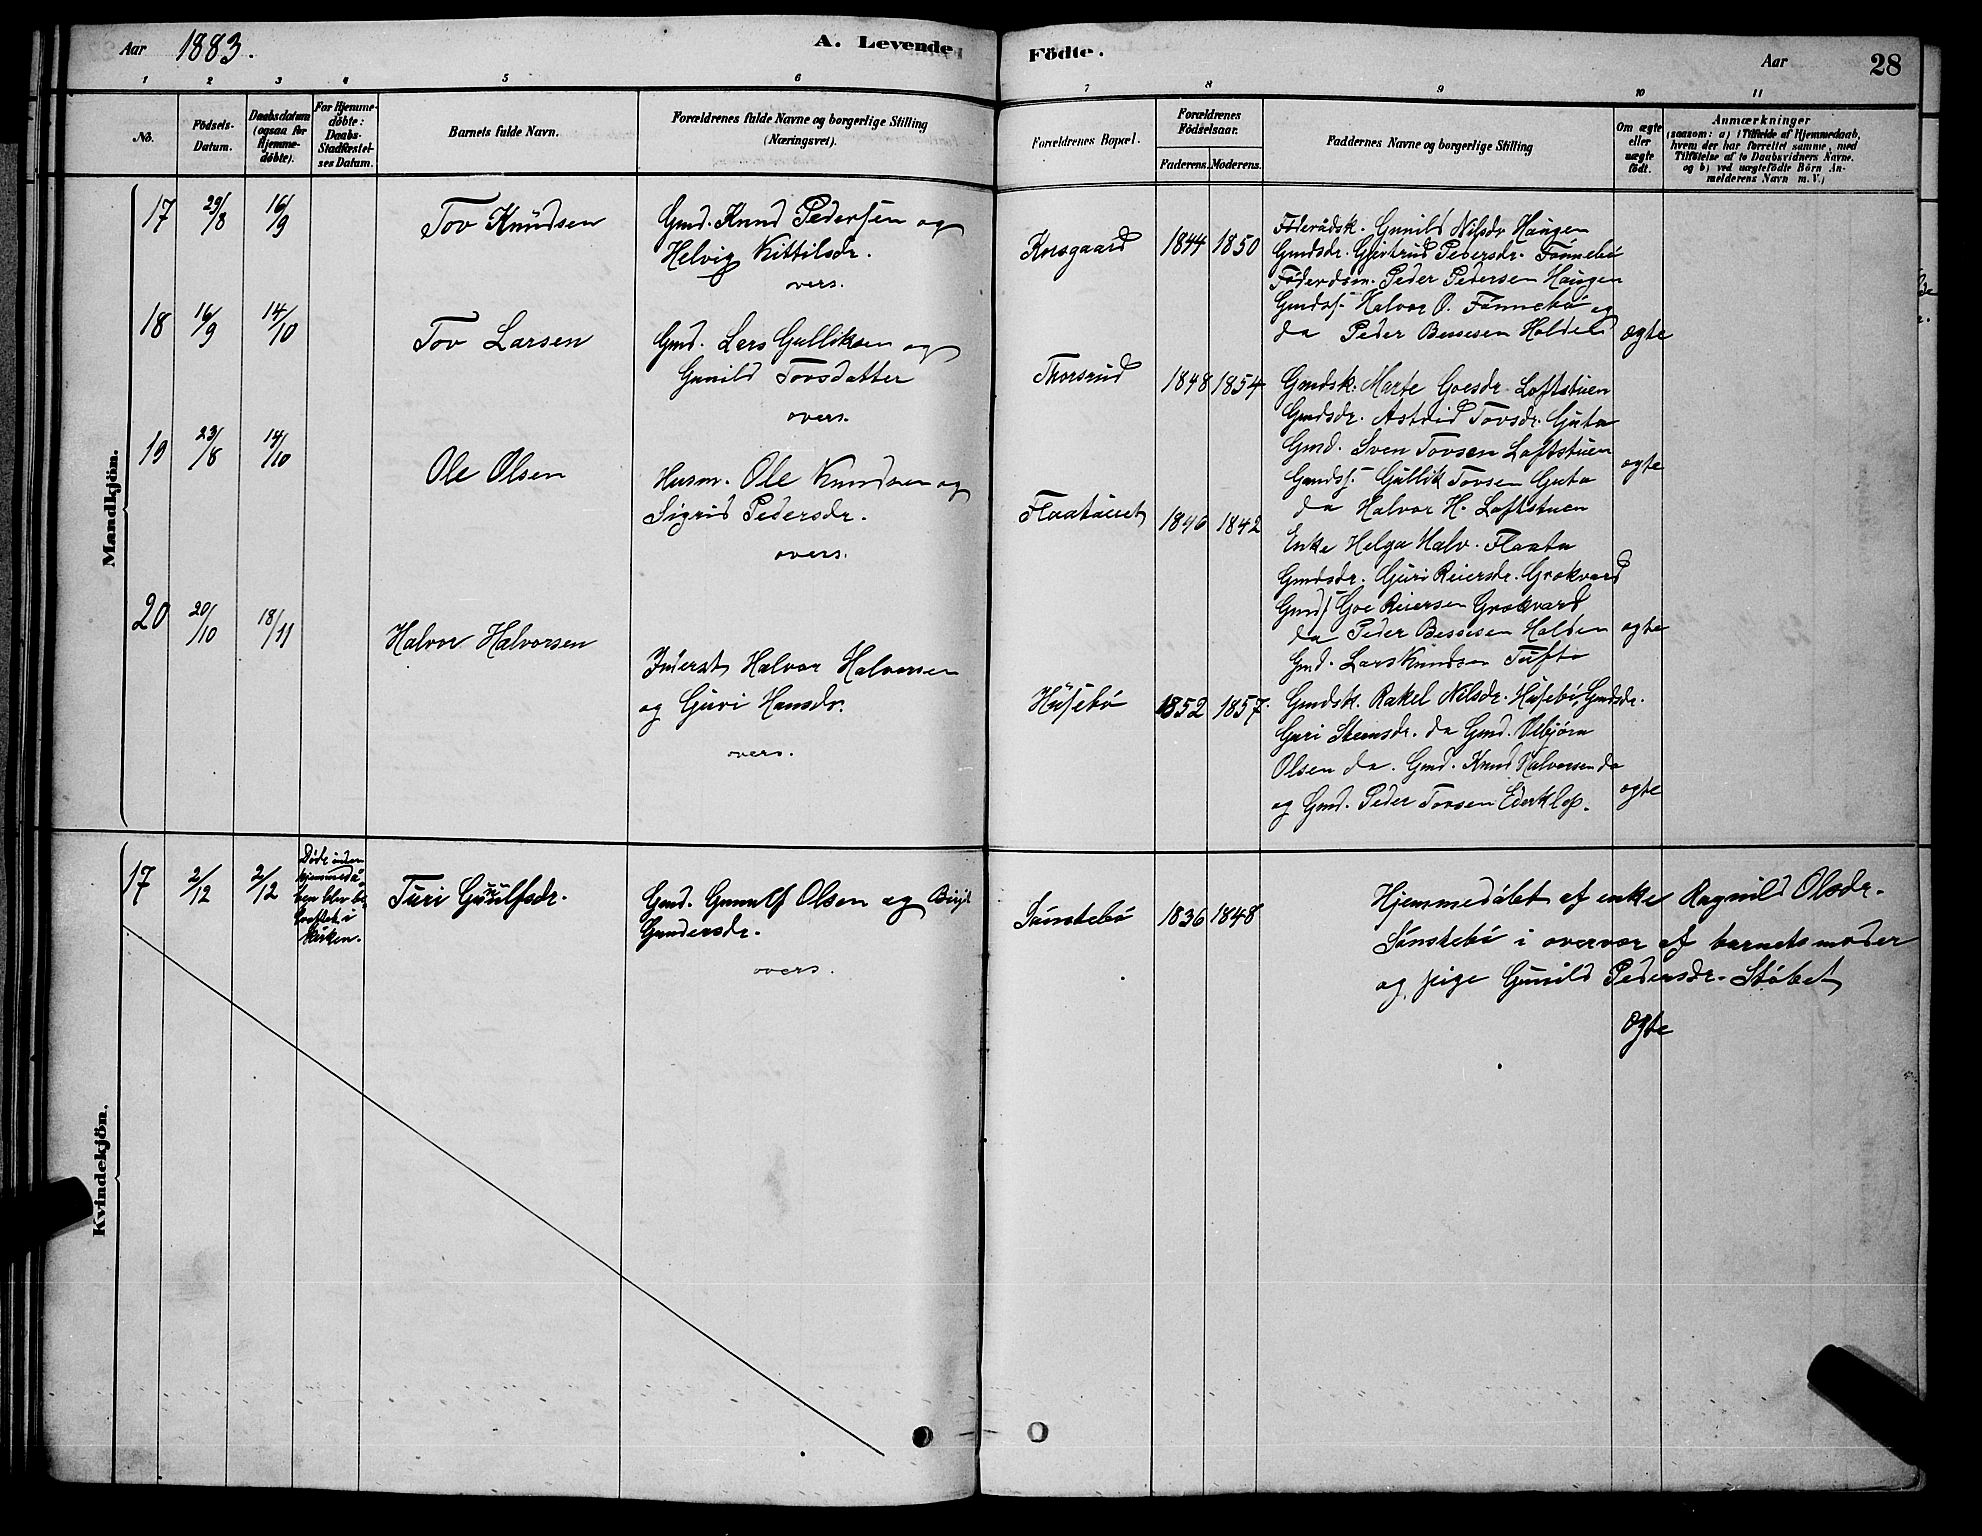 Aar 1883. A. Levende Födte. Aar 28
1 2 3 4 5 6 7 8 9 10 11
No.
Födsels-
Datum.
Daabsdatum
(ogsaa for
Hjemme-
döbte).
For Hjemme-
döbte:
Daabs-
Stadfæstel-
ses Datum.
Barnets fulde Navn.
Forældrenes fulde Navne og borgerlige Stilling
(Næringsvei).
Forældrenes Bopæl.
Forældrenes
Födselsaar.
Faderens. Moderens.
Faddernes Navne og borgerlige Stilling
Om ægte
eller
uægte
födt.
Anmærkninger
(saasom: a) i Tilfælde af Hjemmedaab,
hvem der har forrettet samme, med
Tilföielse af to Daabsvidners Navne.
og b) ved uægtefödte Börn An-
melderens Navn m. V.)
Mandkjön.
17 29/8 16/9 Tov Knudsen
Gmd. Knud Pedersen og
Helvig Kittilsdr.
overs.
Korsgaard 1844 1850
Föderådsk. Gunild Nilsdr Haugen
Gmdsdr. Gjertrud Pedersdr. Fönnebö
Föderdsm. Peder Pedersen Haugen
Gmdss. Halvor O. Fönnebö og
da Peder Bessesen Holden
ægte
18 16/9 14/10 Tov Larsen
Gmd. Lars Gulliksen og
Gunild Tovsdatter
overs.
Thorsrud 1848 1854
Gmdsk. Marte Goesdr. Loftstuen
Gmdsdr. Astrid Tovsdr. Guta
Gmd. Sven Tovsen Loftstuen
Gmdss. Gullik Tovsen Guta
da Halvor H. Loftstuen
ægte
19 23/8 14/10 Ole Olsen
Husm. Ole Knudsen og
Sigrid Pedersdr.
overs.
Flaatainet 1846 1842
Enke Helga Halv. Flaata
Gmdsdr. Guri Reiersdr. Grokvard
Gmds Goe Reiersen Grokvard
da Peder Bessesen Holden
Gmd. Lars Knudsen Tufto
ægte
20 20/10 18/11 Halvor Halvorsen
Inderst Halvor Halvorsen
og Guri Hansdr.
overs.
Husebö 1852 1857
Gmdsk. Rakel Nilsdr. Husebö, Gmdsdr.
Guri Steensdr. da Gmd. Vebjörn
Olsen da. Gmd. Knud Halvorsen da
og Gmd. Peder Tovsen Ederklep.
ægte
Kvindekjön.
17 2/12 2/12
Döde inden
hjemmedå-
ben blev be-
kræftet i
kirken.
Turi Gunulfsdr.
Gmd. Gunulf Olsen og Birgit
Gundersdr.
overs.
Sönstebö 1836 1848
Hjemmedöbt af enke Ragnild Olsdr.
Sönstebö i overvær af barnets moder
og pige Gunild Pedersdr. Stöbet
ægte